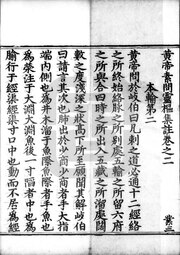 黃帝素問靈樞集註卷之二
本輸第二
黃帝問於岐伯曰凡刺之道必通十二經絡
之所終始絡脉之所別處五輸之所留六府
之所與合四時之所出入五藏之所溜處闊
數之度淺深之狀高下所至願聞其解岐伯
曰請言其次也肺出於少商少商者手大指
端内側也為井木溜于魚際魚際者手魚也
為滎注于大淵大淵魚後一寸陷者中也為
腧行于經渠經渠寸口中也動而不居為經